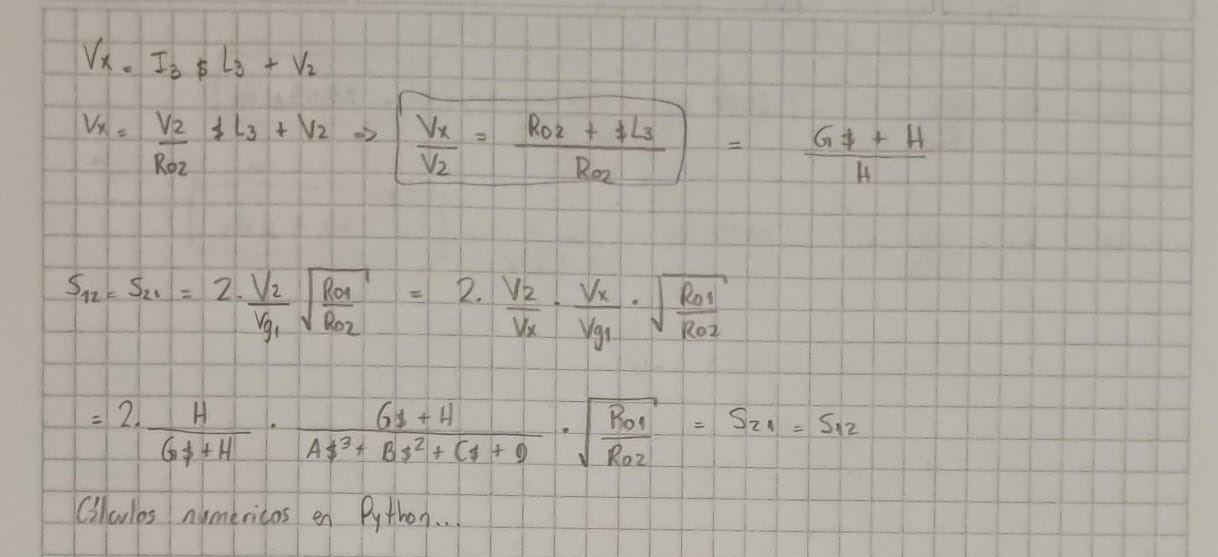 Vx = I3 $ L3 + V2
Vx = V2/R02 $ L3 + V2 => Vx/V2 = (R02 + $L3)/R02 = (G$ + H)/H
S12 = S21 = 2. V2/Vg1 √(R01/R02) = 2. V2/Vx . Vx/Vg1 . √(R01/R02)
= 2. H/(G$+H) . (G$+H)/(A$³+ B$²+ C$ + D) . √(R01/R02) = S21 = S12
Cálculos numericos en Python...